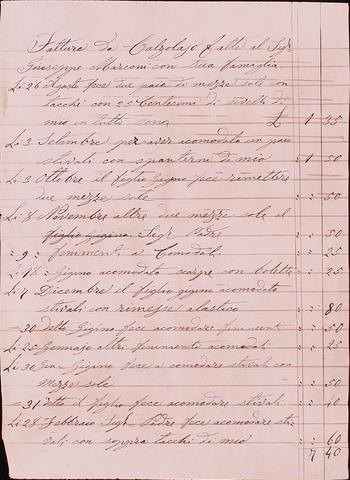 Fatture da Calzolajo fatte al Sigr
Giuseppe Marconi con sua famiglia
Li 26 Agosto fece due paia di mezze sole con
tacchi con 25 Centesimi di
mio in tutti sono £ 1 35
Li 3 Settembre per aver acomodato un paio
stivali con spanterni di mio : 1 50
Li 3 Ottobre il figlio gigino fece rimettere
due mezze sole : : 50
Li 8 Novembre altre due mezze sole al
figlio gigino Sigr Padre : : 50
: 9 : finimenti a Comodati : : 25
Li 18 = Gigino acomodato scarpe con bolette : 25
Li 7 Dicembre il figlio gigino acomodato
stivali con rimesse alastico : : 80
— 30 Detto Gigino fece acomodare finimenti : 50
Li 25 Gennajo altri finimento acomodati : 25
Li 30 Gigino fece a comodare stivali con
Mezze sole : : 50
— 31 Detto il figlio fece acomodare stivali : 40
Li 28 Febbraio Sigr Padre fece acomodare sti-
vali con soppra tacchi di mio : 60
7 40